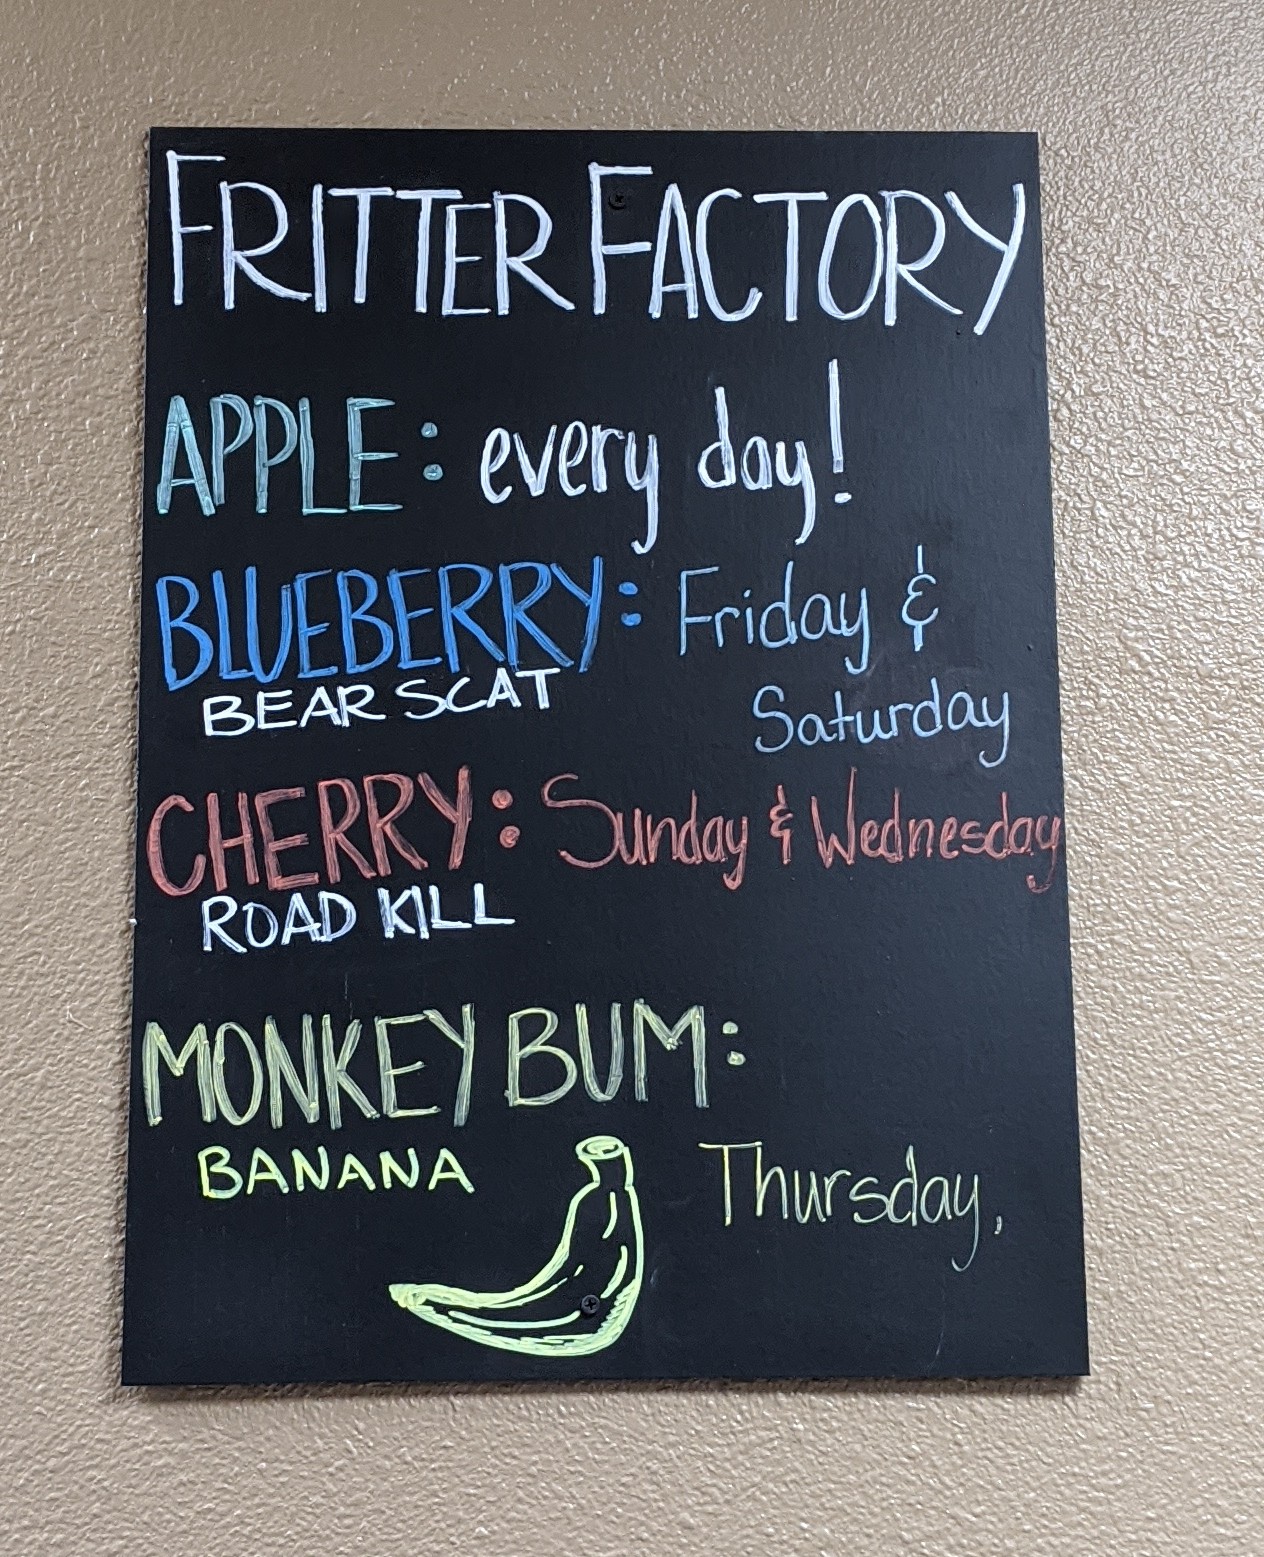 FRITTER FACTORY
APPLE: every day!
BLUEBERRY: Friday &
BEAR SCAT Saturday
CHERRY: Sunday & Wednesday
ROAD KILL
MONKEY BUM:
BANANA Thursday,